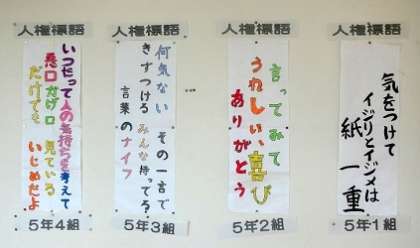 人権標語
気をつけて
イジリとイジメは
紙一重
5年1組
人権標語
言ってみて
うれしい、喜び
ありがとう
5年2組
人権標語
何気ない その一言で
きずつける みんな持ってる?
言葉のナイフ
5年3組
人権標語
いつだって人の気持ちを考えて
悪口かげ口 見ている
だけでも いじめだよ
5年4組